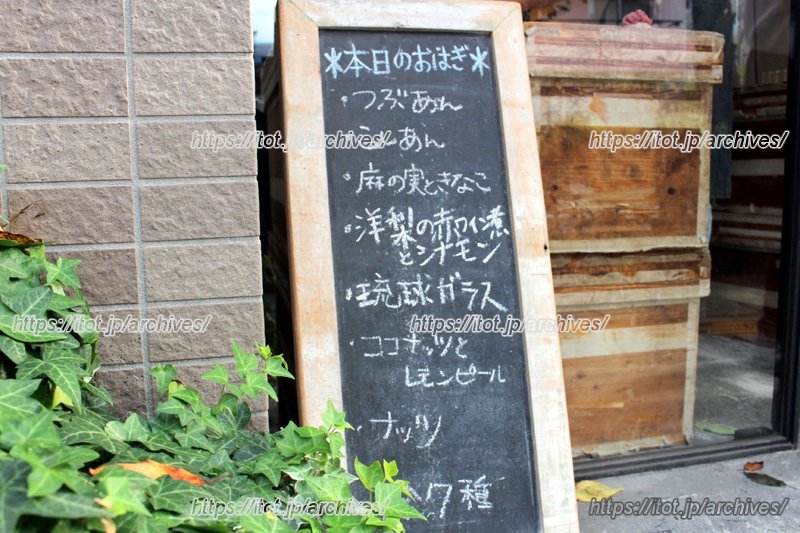 *本日のおはぎ*
・つぶあん
こしあん
・麻の実ときなこ
・洋梨の赤ワイン煮
とシナモン
・琉球ガラス
・ココナッツと
レモンピール
ナッツ
7種
https://itot.jp/archives/
https://itot.jp/archives/
https://itot.jp/archives/
https://itot.jp/archives/
https://itot.jp/archives/
https://itot.jp/archives/